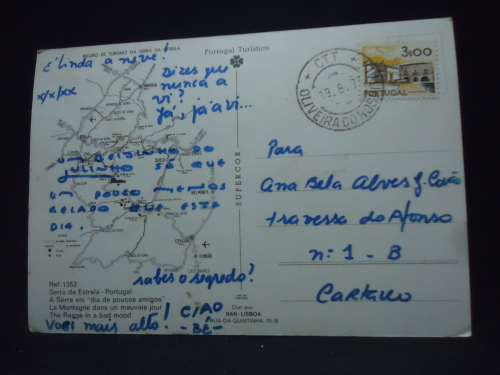 REGIÃO DE TURISMO DA SERRA DA ESTRELA
Portugal Turístico
É linda a neve!
x/x/xx
Dizes que
nunca a
vi?
Já, já a vi...
UM BEIJINHO DO
JULINHO SÓ QUE
UM POUCO MENOS
GELADO QUE ESTE
DIA.
sabes o segredo?
Voei mais alto!
! CIAO
- BÉ -
Ref. 1352
Serra da Estrela - Portugal
A Serra em "dia de poucos amigos"
La Montagne dans un mauvais jour
The Range in a bad mood
SUPERCOR
RAN - LISBOA
RUA DA QUINTINHA, 70-B
CTT
OLIVEIRA DO HOSP
3$00
PORTUGAL
Para
Ana Bela Alves
Travessa do Afonso
nº 1 - B
Cartaxo